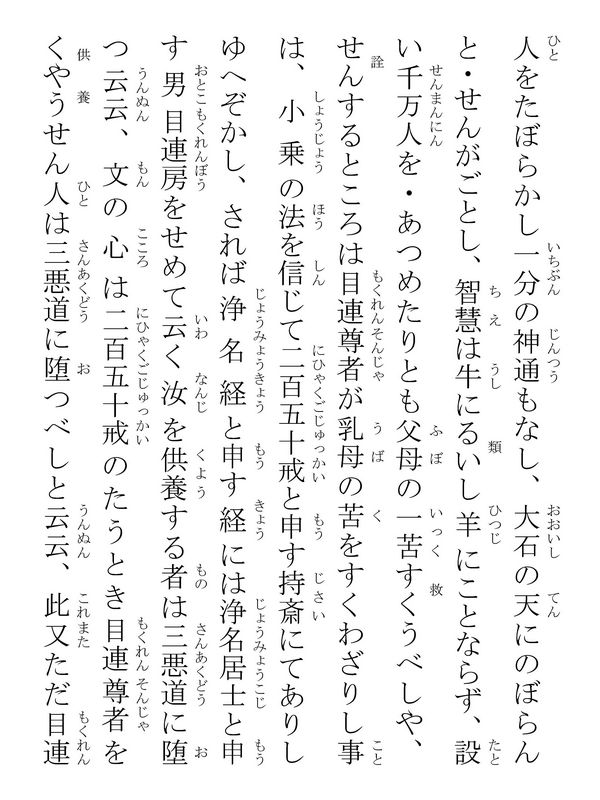 人をたぼらかし一分の神通もなし、大石の天にのぼらん
と・せんがごとし、智慧は牛にるいし羊にことならず、設
い千万人を・あつめたりとも父母の一苦すくうべしや、
せんするところは目連尊者が乳母の苦をすくわざりし事
は、小乗の法を信じて二百五十戒と申す持斎にてありし
ゆへぞかし、されば浄名経と申す経には浄名居士と申
す男目連房をせめて云く汝を供養する者は三悪道に堕
つ云云、文の心は二百五十戒のたうとき目連尊者を
くやうせん人は三悪道に堕つべしと云云、此又ただ目連